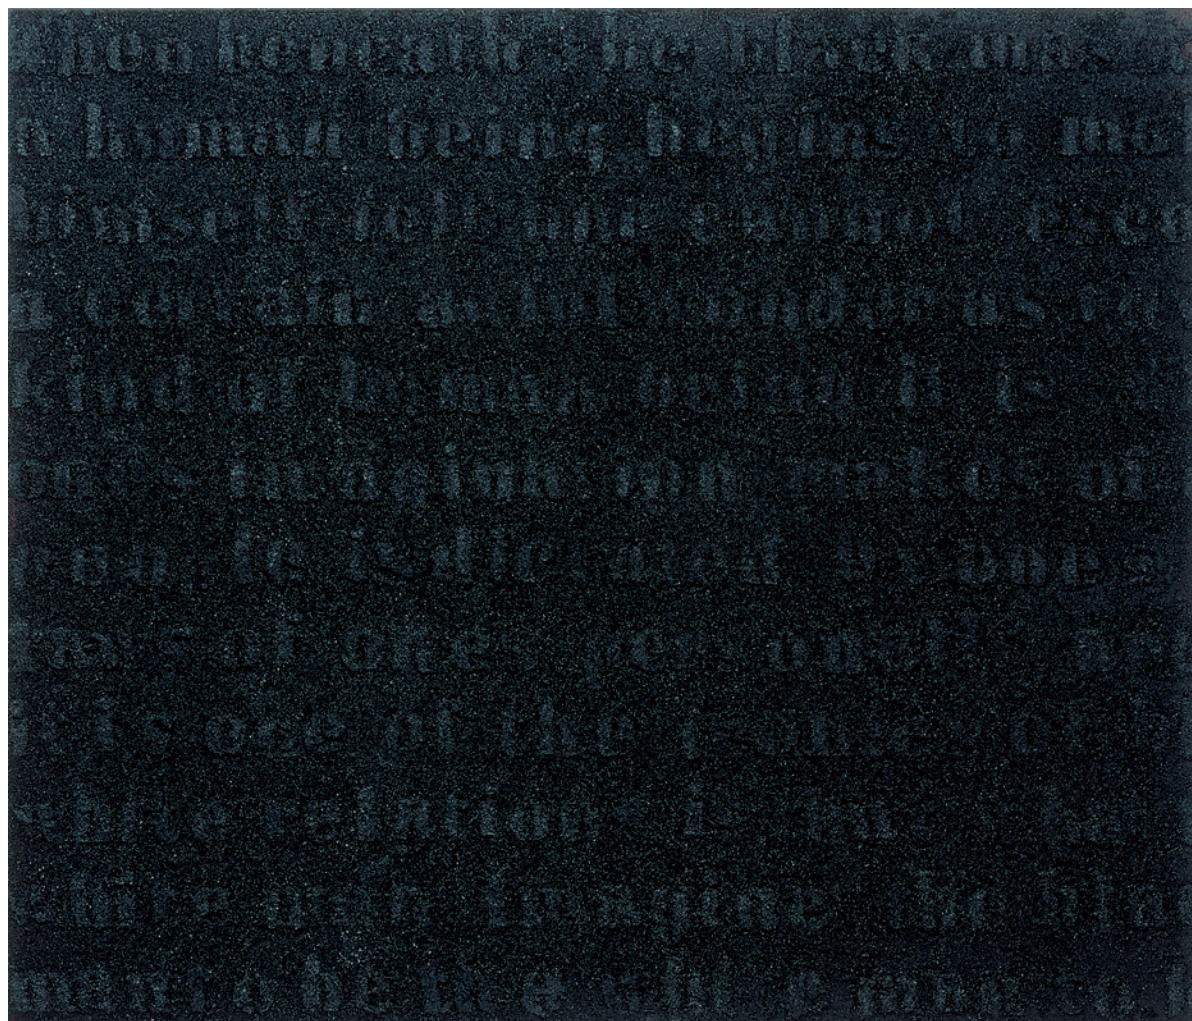 when beneath the black mas
a human being begins to ma
himself felt one cannot esca
a certain awful wonder as to
kind of human being it is
one's imagination makes of
is dictated by one's
laws of one's personality
it is one of the ironies of
white relations is
imagine the bla
man to be the white man to